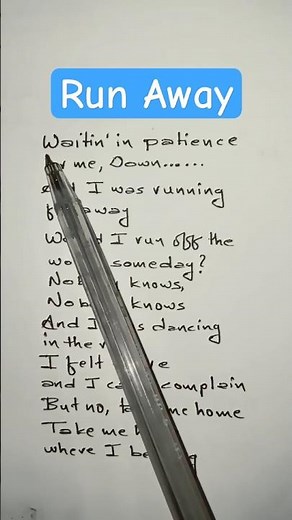 Run Away
Waitin' in patience
me, Down......
I was running
away
I run off the
someday?
knows,
knows
And I dancing
in the
I felt
and I complain
But no, me home
Take me
where I